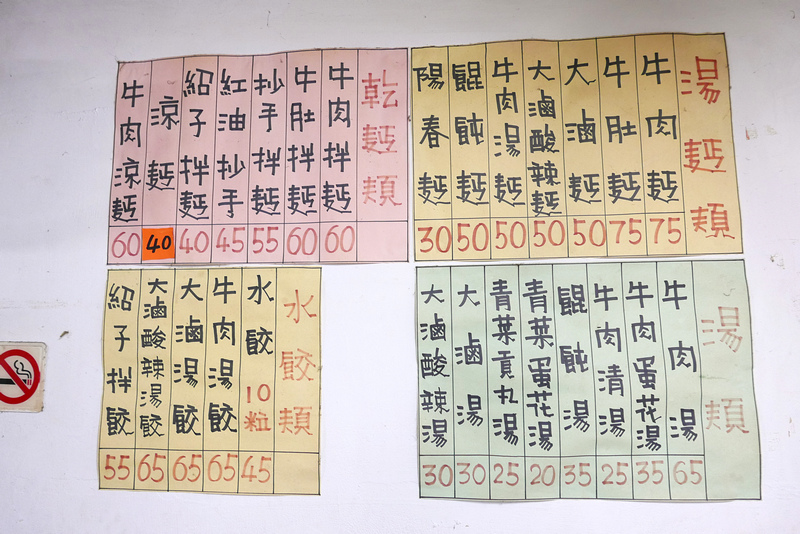 乾麵類
牛肉拌麵 60
牛肚拌麵 60
抄手拌麵 55
紅油抄手 45
紹子拌麵 40
涼麵 40
牛肉涼麵 60
湯麵類
牛肉麵 75
牛肚麵 75
大滷麵 50
大滷酸辣麵 50
牛肉湯麵 50
餛飩麵 50
陽春麵 30
水餃類
水餃10粒 45
牛肉湯餃 65
大滷湯餃 65
大滷酸辣湯餃 65
紹子拌餃 55
湯類
牛肉湯 65
牛肉蛋花湯 35
牛肉清湯 25
餛飩湯 35
青菜蛋花湯 20
青菜貢丸湯 25
大滷湯 30
大滷酸辣湯 30